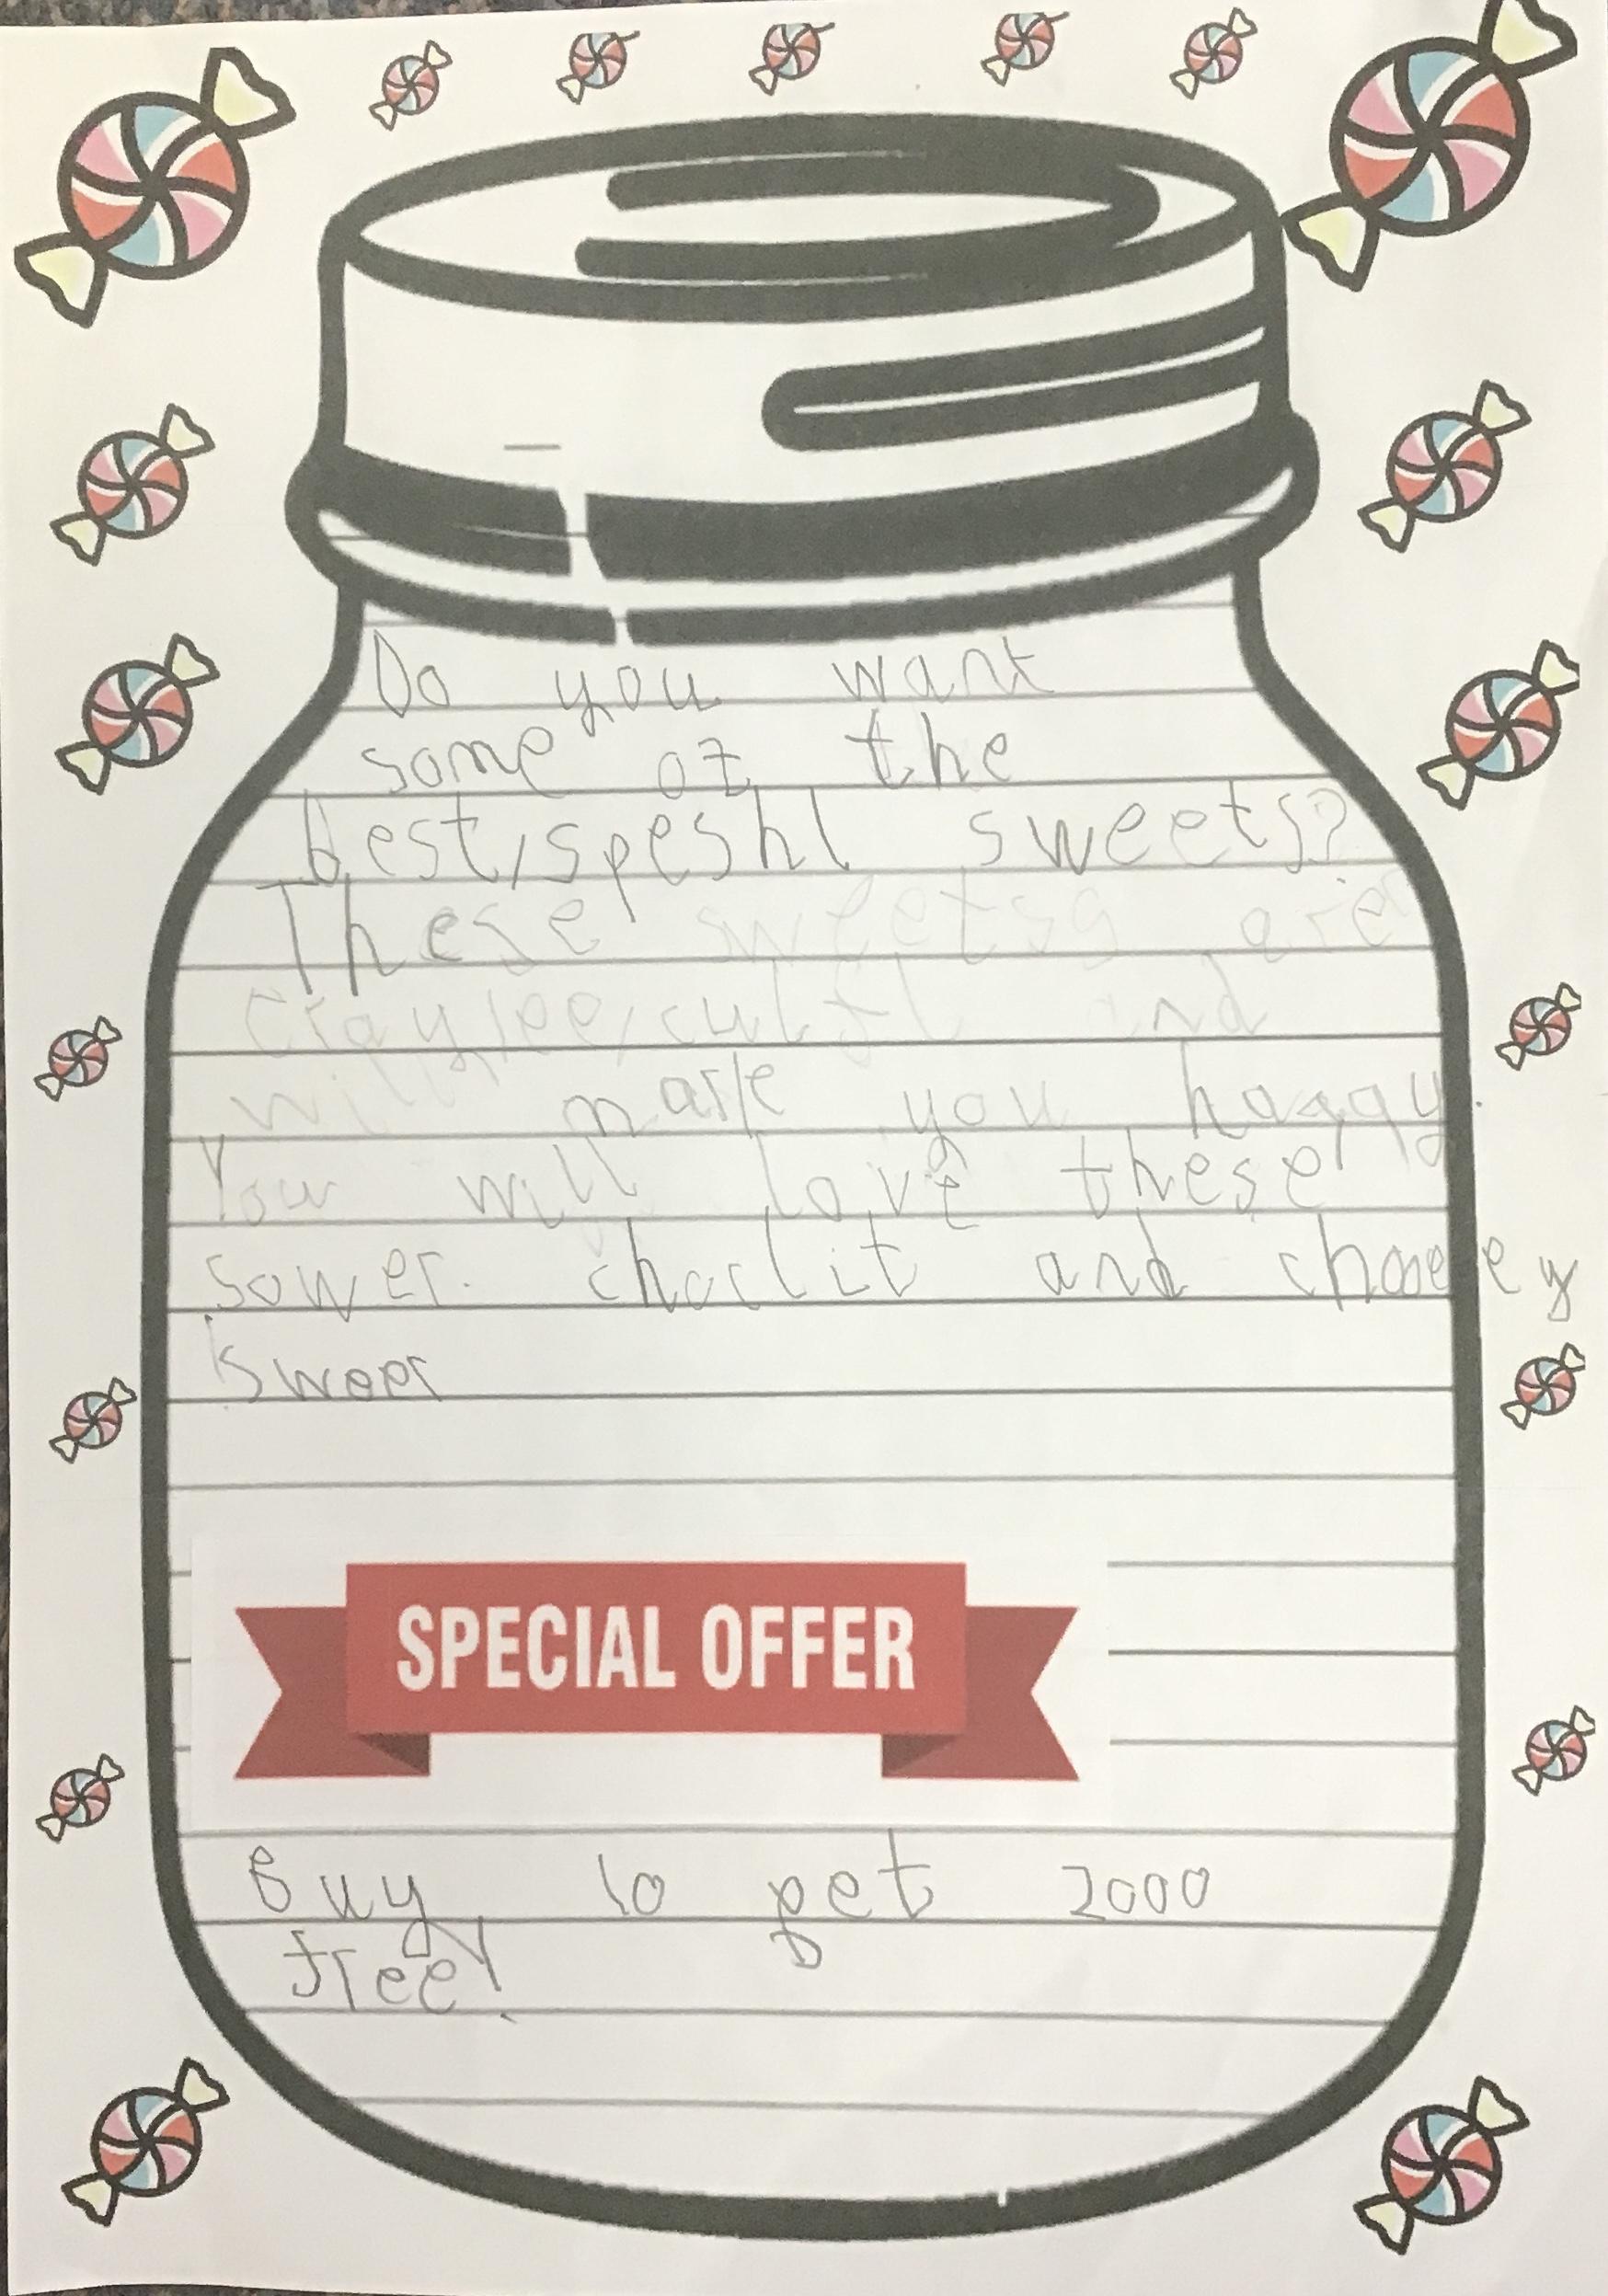 Do you want
some of the
best/speshl sweets?
These sweets are
and
will make you happy.
You will love these
sower choclit and
sweet
SPECIAL OFFER
Buy 10 get 2000
free!